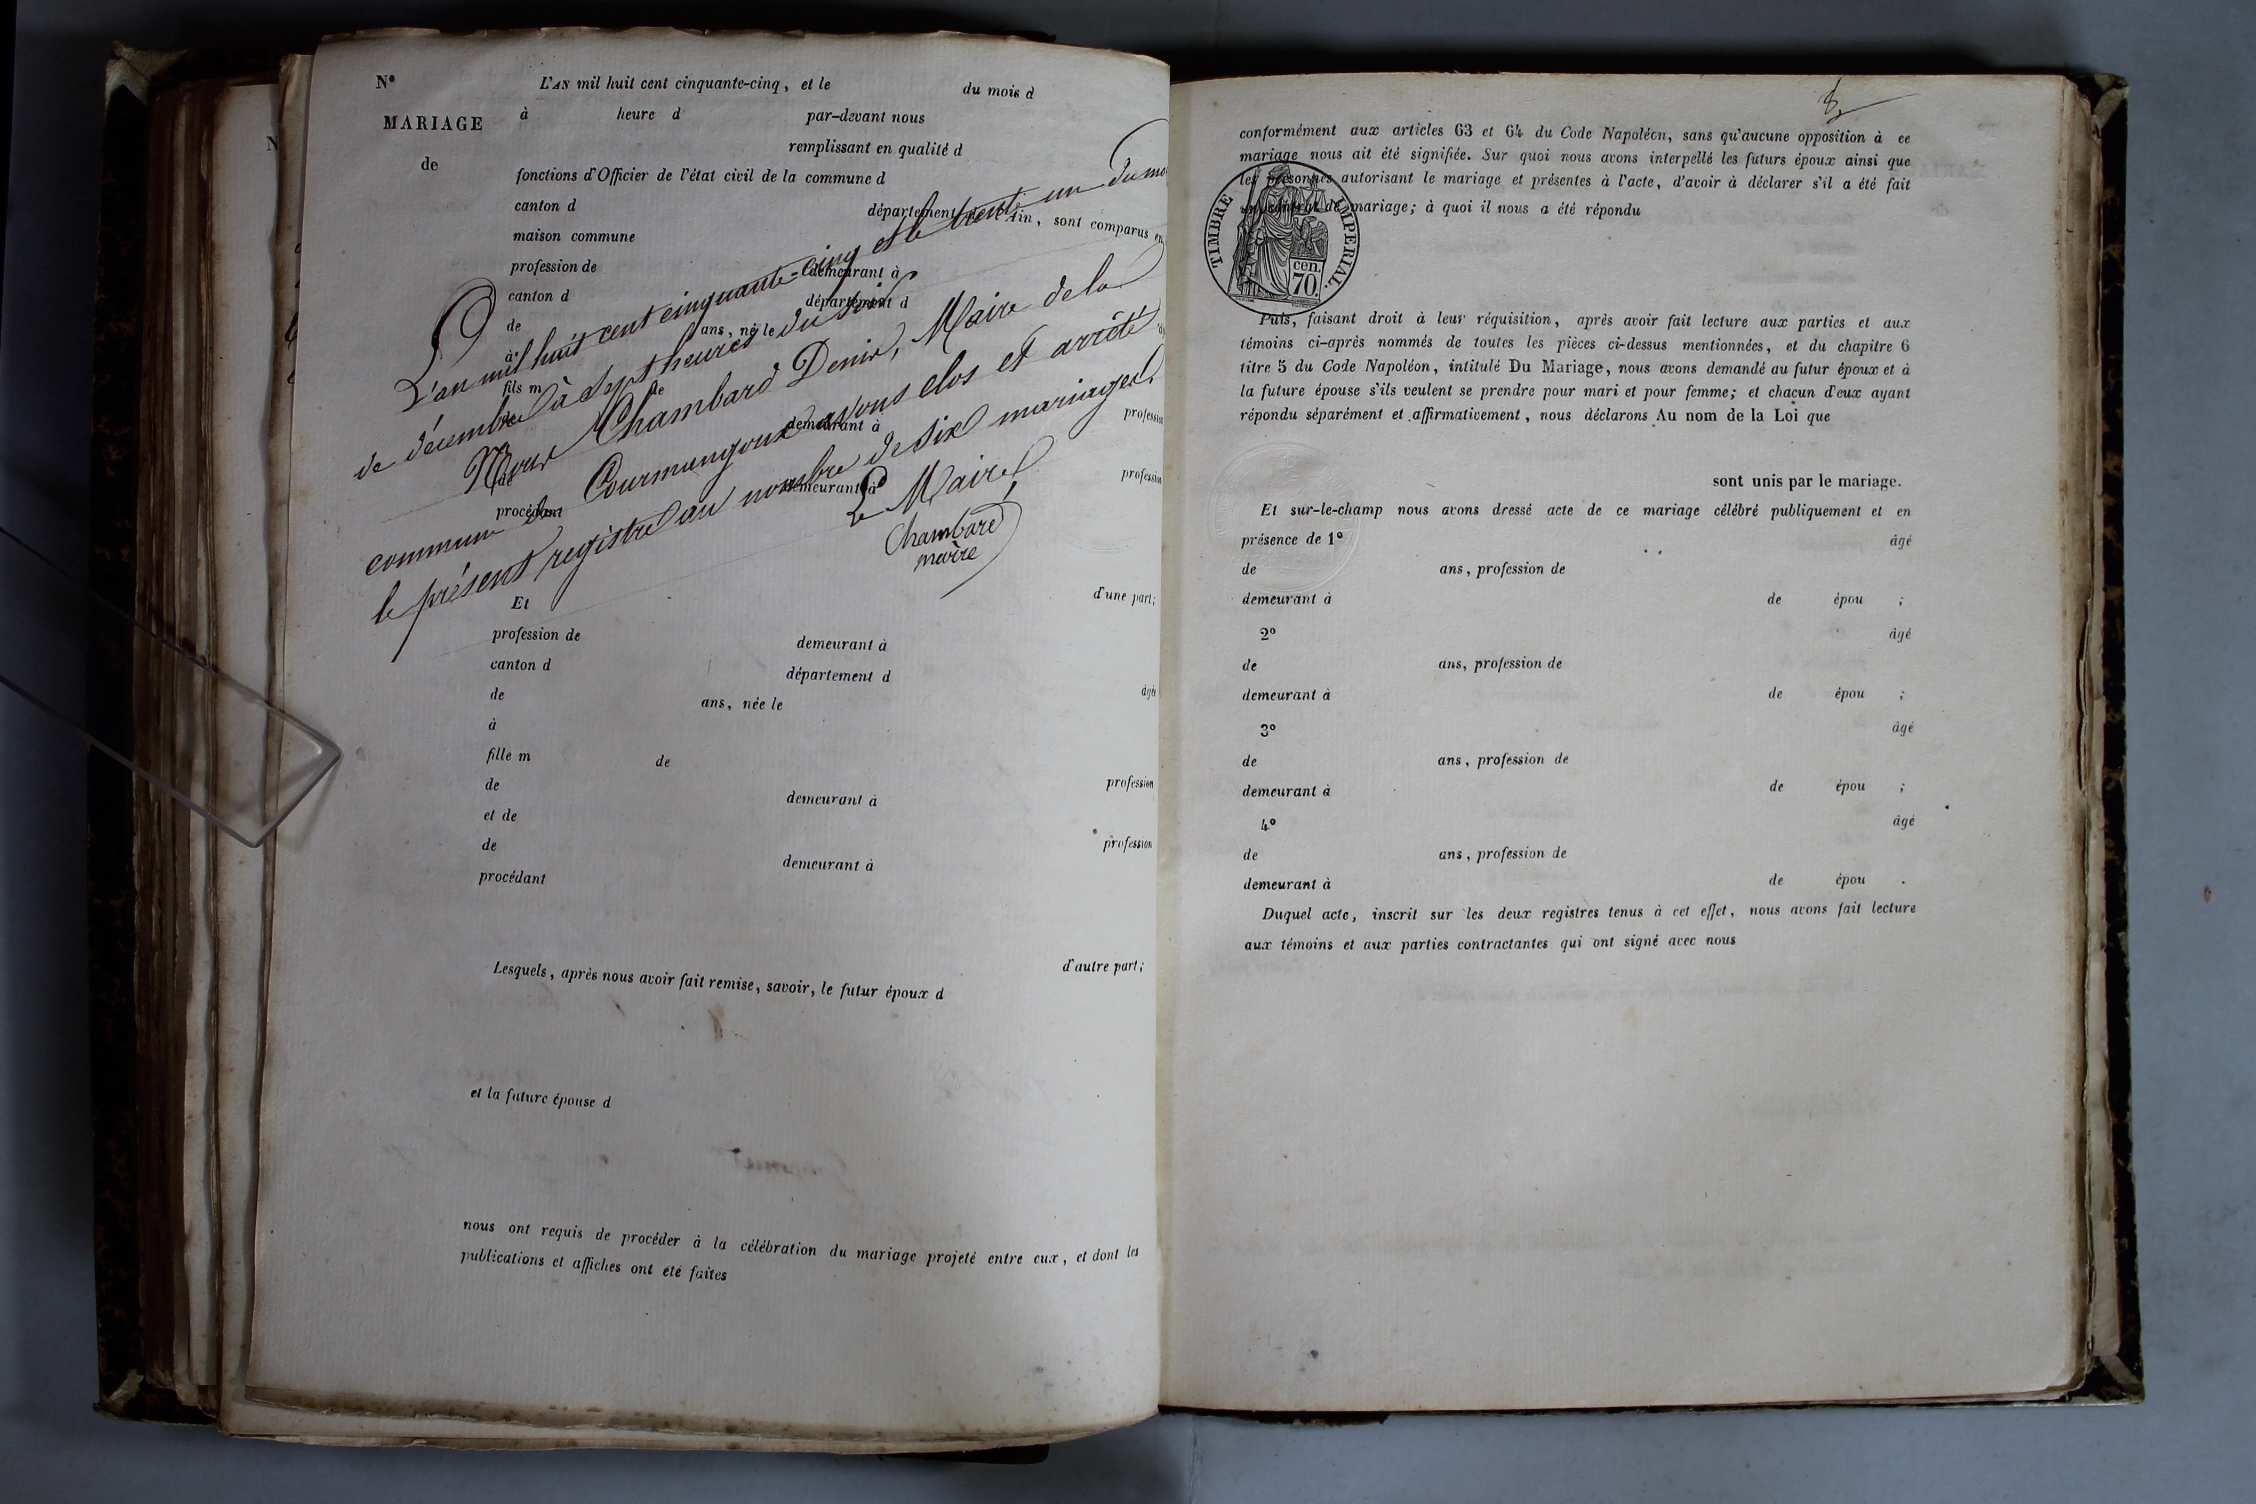 N°
MARIAGE
de
L'AN mil huit cent cinquante-cinq, et le du mois d
à heure d par-devant nous
remplissant en qualité d
fonctions d'Officier de l'état civil de la commune d
canton d département de l'Ain, sont comparus en
maison commune
profession de demeurant à
canton d département d
de ans, né le
à
fils m de
de demeurant à profession
de demeurant à profession
procédant
L'an mil huit cent cinquante-cinq et le trente un du mois
de décembre à sept heures du soir
Nous Chambard Denis, Maire de la
commune de Courmangoux avons clos et arrêté
le présent registre au nombre de six mariages.
Le Maire
Chambard
maire
d'une part;
Et
profession de demeurant à
canton d département d
de ans, née le âgée
à
fille m de
de demeurant à profession
et de
de demeurant à profession
procédant
d'autre part;
Lesquels, après nous avoir fait remise, savoir, le futur époux d
et la future épouse d
nous ont requis de procéder à la célébration du mariage projeté entre eux, et dont les
publications et affiches ont été faites
conformément aux articles 63 et 64 du Code Napoléon, sans qu'aucune opposition à ce
mariage nous ait été signifiée. Sur quoi nous avons interpellé les futurs époux ainsi que
les personnes autorisant le mariage et présentes à l'acte, d'avoir à déclarer s'il a été fait
un contrat de mariage; à quoi il nous a été répondu
TIMBRE IMPERIAL.
cen.
70.
Puis, faisant droit à leur réquisition, après avoir fait lecture aux parties et aux
témoins ci-après nommés de toutes les pièces ci-dessus mentionnées, et du chapitre 6
titre 5 du Code Napoléon, intitulé Du Mariage, nous avons demandé au futur époux et à
la future épouse s'ils veulent se prendre pour mari et pour femme; et chacun d'eux ayant
répondu séparément et affirmativement, nous déclarons Au nom de la Loi que
sont unis par le mariage.
Et sur-le-champ nous avons dressé acte de ce mariage célébré publiquement et en
présence de 1° âgé
de ans, profession de
demeurant à de épou ;
2° âgé
de ans, profession de
demeurant à de épou ;
3° âgé
de ans, profession de
demeurant à de épou ;
4° âgé
de ans, profession de
demeurant à de épou .
Duquel acte, inscrit sur les deux registres tenus à cet effet, nous avons fait lecture
aux témoins et aux parties contractantes qui ont signé avec nous